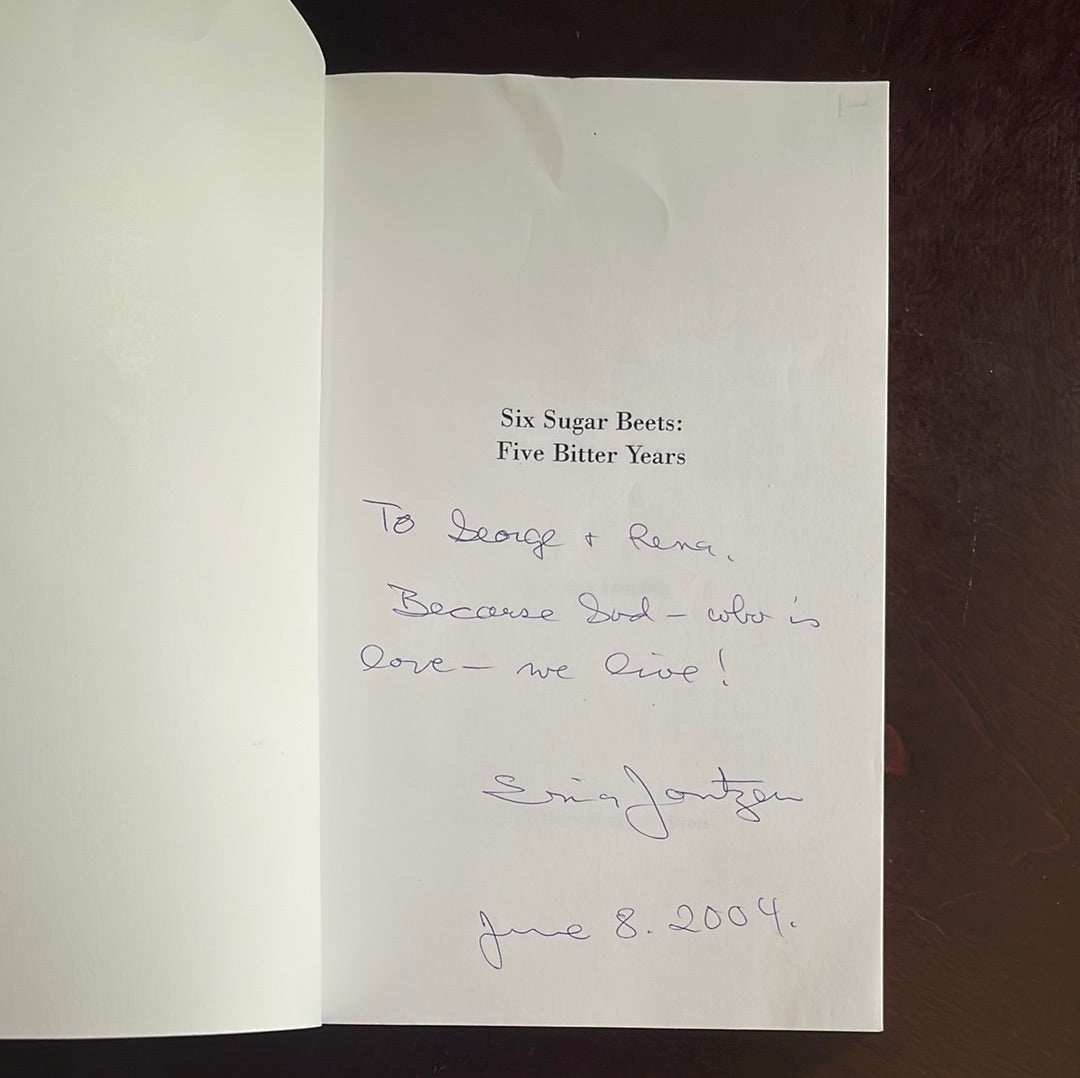 Six Sugar Beets:
Five Bitter Years
To George + Rena.
Because God – who is
love – we live!
Erica Jantzen
June 8. 2004.